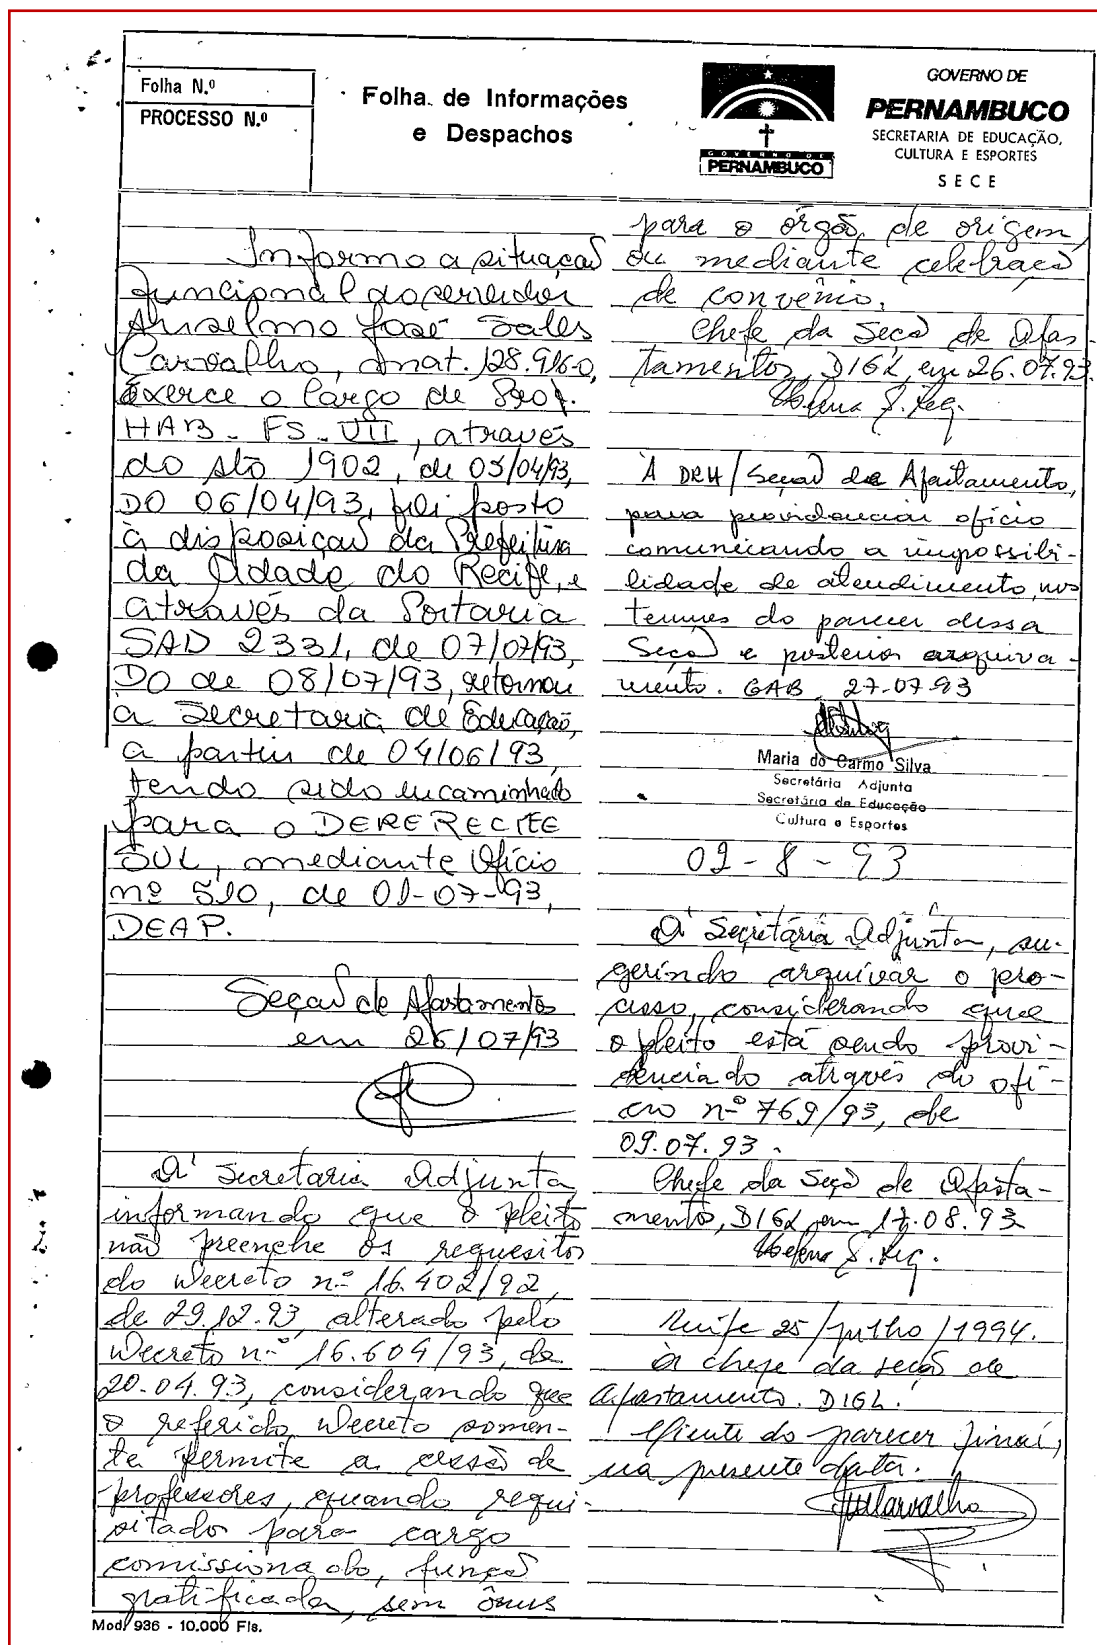 Folha N.º
PROCESSO N.º
Folha de Informações
e Despachos
GOVERNO DE
PERNAMBUCO
GOVERNO DE
PERNAMBUCO
SECRETARIA DE EDUCAÇÃO,
CULTURA E ESPORTES
SECE
Informo a situação
funcional do servidor
Anselmo José Sales
Carvalho, mat. 128.916-0,
Exerce o Cargo de Prof.
HAB - FS - VII, através
do Ato 1902, de 05/04/93,
DO 06/04/93, foi posto
à disposição da Prefeitura
da Cidade do Recife, e
através da Portaria
SAD 2331, de 07/07/93,
DO de 08/07/93, retornou
a Secretaria de Educação,
a partir de 04/06/93,
tendo sido encaminhado
para o DERE RECIFE
SUL, mediante Ofício
nº 510, de 01-07-93,
DEAP.
Seção de Afastamentos
em 26/07/93
À Secretaria Adjunta,
informando que o pleito
não preenche os requesitos
do Decreto nº 16.402/92,
de 29.12.93, alterado pelo
Decreto nº 16.604/93, de
20.04.93, considerando que
o referido Decreto somen-
te permite a cessão de
professores, quando requi-
sitado para cargo
comissionado, função
gratificada, sem ônus
para o órgão de origem,
ou mediante celebração
de convênio.
Chefe da Seção de Afas-
tamentos, DIGL, em 26.07.93.
À DRH/Seção de Afastamento,
para providenciar ofício
comunicando a impossibi-
lidade de atendimento, nos
termos do parecer dessa
Seção e posterior arquiva-
mento. GAB 27-07-93
Maria do Carmo Silva
Secretária Adjunta
Secretária de Educação
Cultura e Esportes
02-8-93
À Secretária Adjunta, su-
gerindo arquivar o pro-
cesso, considerando que
o pleito está sendo provi-
denciado através do ofí-
cio nº 769/93, de
09.07.93.
Chefe da Seção de Afasta-
mento, DIGL, em 17.08.93
Recife 25/julho/1994.
À chefe da seção de
afastamento. DIGL.
Ciente do parecer final,
na presente data.
Carvalho
Mod. 936 - 10.000 Fls.